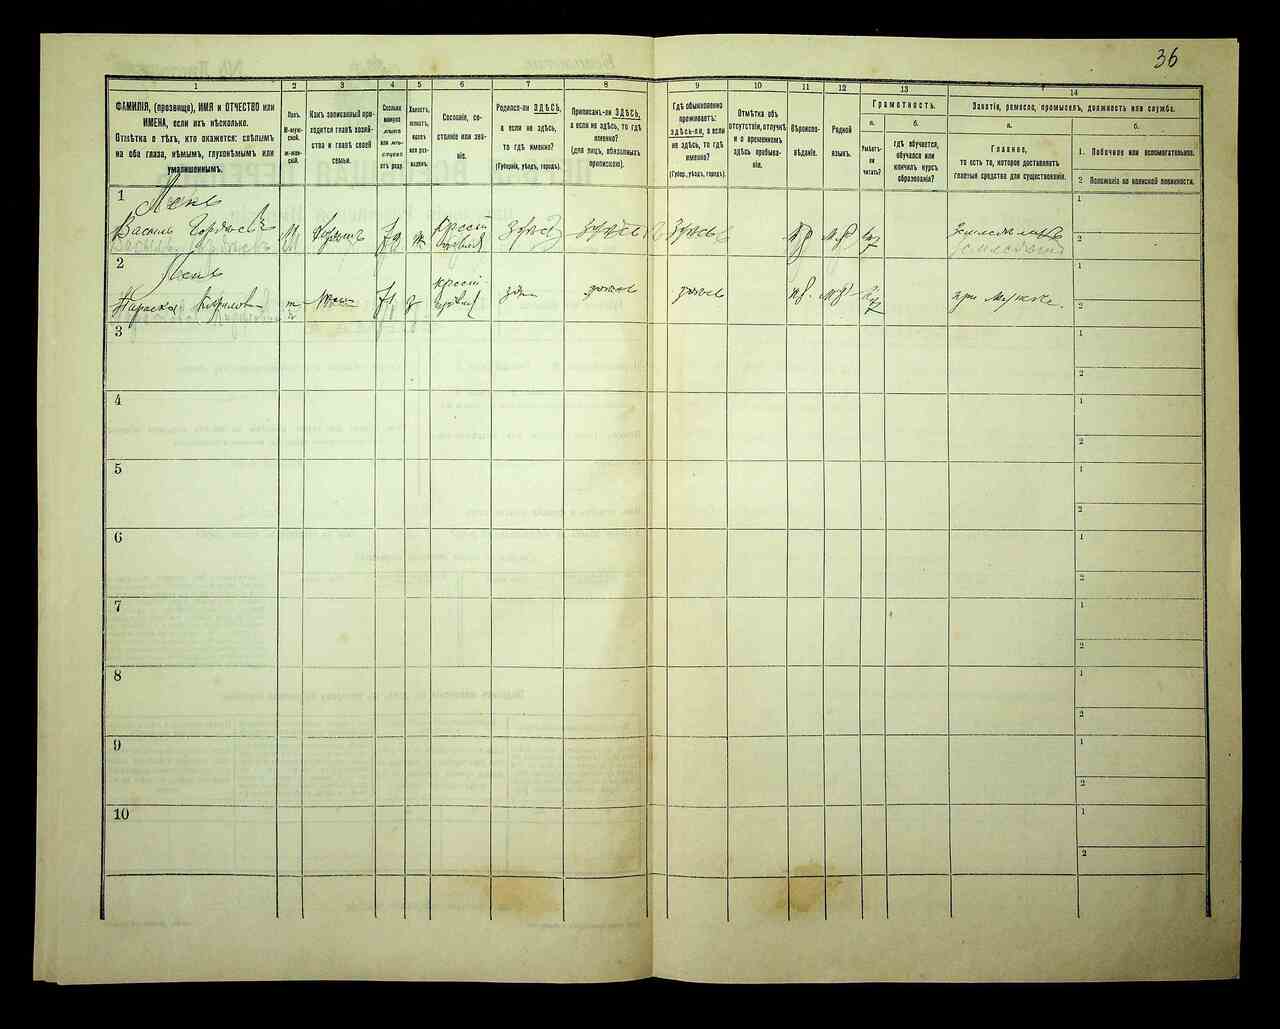 36
1
2
3
4
5
6
7
8
9
10
11
12
13
14
ФАМИЛІЯ, (прозвище), ИМЯ и ОТЧЕСТВО или
ИМЕНА, если ихъ нѣсколько.
Отмѣтка о тѣхъ, кто окажется: слѣпымъ
на оба глаза, нѣмымъ, глухонѣмымъ или
умалишеннымъ.
Полъ.
М-муж-
ской.
Ж-жен-
скій.
Какъ записанный при-
ходится главѣ хозяй-
ства и главѣ своей
семьи.
Сколько
минуло
лѣтъ
или мѣ-
сяцевъ
отъ роду.
Холостъ,
женатъ,
вдовъ
или раз-
веденъ.
Сословіе, со-
стояніе или зва-
ніе.
Родился-ли ЗДѢСЬ,
а если не здѣсь,
то гдѣ именно?
(Губернія, уѣздъ, городъ).
Приписанъ-ли ЗДѢСЬ,
а если не здѣсь, то гдѣ
именно?
(для лицъ, обязанныхъ
припискою).
Гдѣ обыкновенно
проживаетъ:
здѣсь-ли, а если
не здѣсь, то гдѣ
именно?
(Губер., уѣздъ, городъ).
Отмѣтка объ
отсутствіи, отлучкѣ
и о временномъ
здѣсь пребыва-
ніи.
Вѣроиспо-
вѣданіе.
Родной
языкъ.
Грамотность.
а.
Умѣетъ-
ли
читать?
б.
гдѣ обучается,
обучался или
кончилъ курсъ
образованія?
Занятіе, ремесло, промыселъ, должность или служба.
а.
Главное,
то есть то, которое доставляетъ
главныя средства для существованія.
б.
1. Побочное или вспомогательное.
2 Положеніе по воинской повинности.
1
Василь Гордѣевъ
М
крестъ
здѣсь
здѣсь
здѣсь
1
2
2
Параска Кирилова
ж
жена
71
крестъ
здѣсь
здѣсь
при мужѣ
1
2
3
1
2
4
1
2
5
1
2
6
1
2
7
1
2
8
1
2
9
1
2
10
1
2